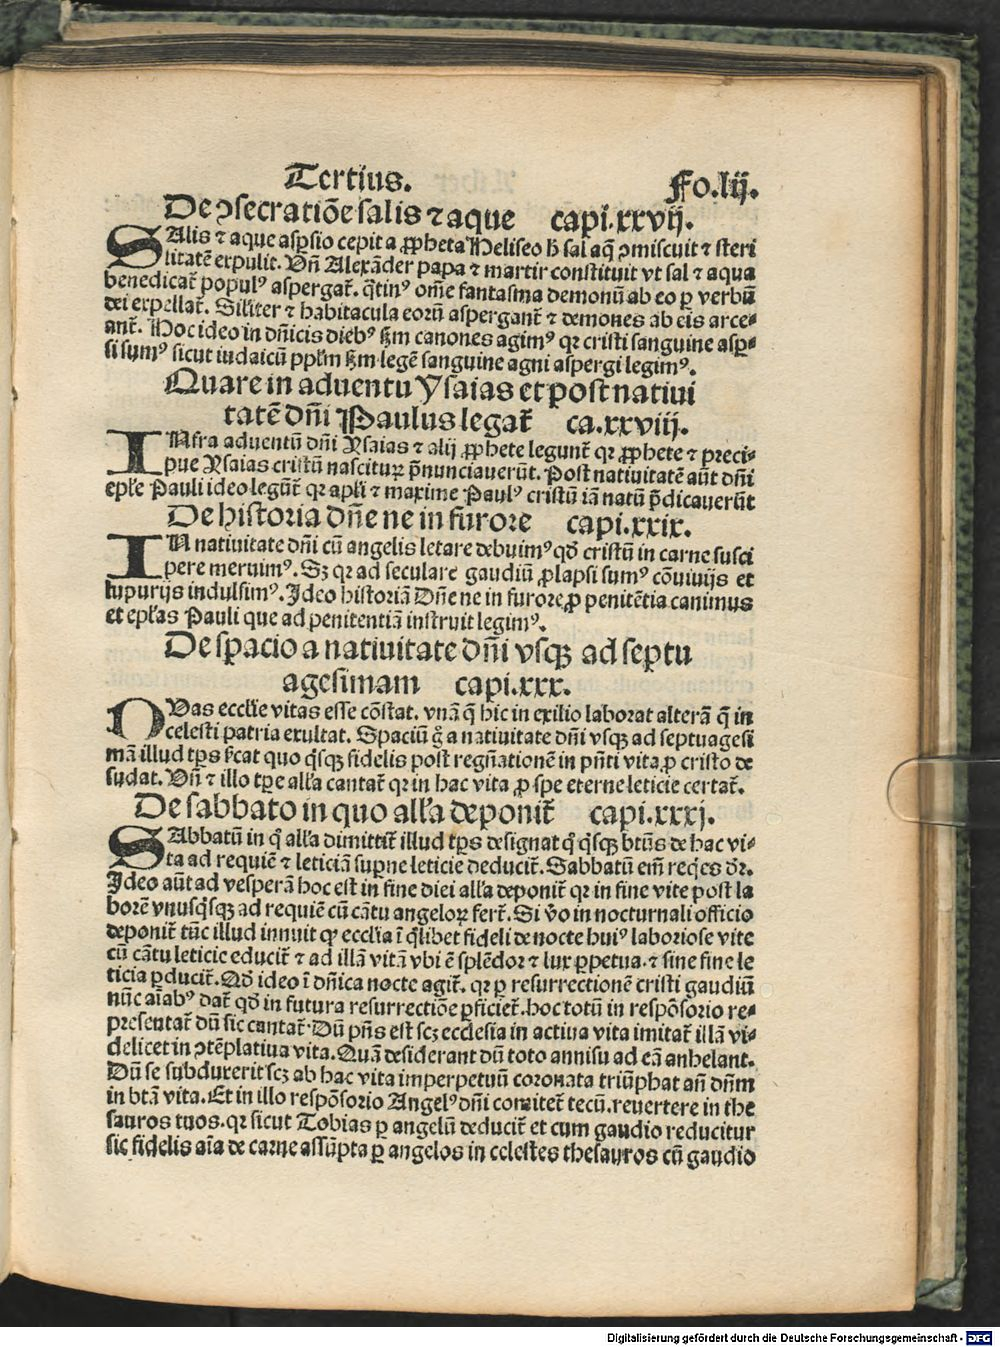 Tertius. Fo.lij.
De ꝯsecratiōe salis ⁊ aque capi.xxvij.
SAlis ⁊ aque aspsio cepit a ꝓpheta Heliseo ħ sal aq̄ ꝯmiscuit ⁊ steri
litatē expulit. Vn̄ Alexāder papa ⁊ martir constituit vt sal ⁊ aqua
benedicat᷑ populꝰ aspergat᷑. q̄tinꝰ om̄e fantasma demonū ab eo ꝑ verbū
dei expellat᷑. Silīter ⁊ habitacula eorū aspergant᷑ ⁊ demones ab eis arce-
ant᷑. Hoc ideo in dn̄icis diebꝰ ẜm canones agimꝰ qꝛ cristi sanguine aspꝑ-
si sumꝰ sicut iudaicū pplm̄ ẜm legē sanguine agni aspergi legimꝰ.
Quare in aduentu Ysaias et post natiui
tatē dn̄i Paulus legat᷑ ca.xxviij.
INfra aduentū dn̄i Ysaias ⁊ alij ꝓphete legunt᷑ qꝛ ꝓphete ⁊ preci-
pue Ysaias cristū nasciturꝝ p̄nunciauerūt. Post natiuitatē aūt dn̄i
epłe Pauli ideo legūt᷑ qꝛ apłi ⁊ maxime Paulꝰ cristū iā natū p̄dicauerūt
De historia dn̄e ne in furore capi.xxix.
IN natiuitate dn̄i cū angelis letare debuimꝰ qđ cristū in carne susci
pere meruimꝰ. Sꝫ qꝛ ad seculare gaudiū ꝓlapsi sumꝰ cōuiuijs et
luxurijs indulsimꝰ. Ideo historiā Dn̄e ne in furore ꝓ penitētia canimus
et epłas Pauli que ad penitentiā instruit legimꝰ.
De spacio a natiuitate dn̄i vsqꝫ ad septu
agesimam capi.xxx.
DVas ecclīe vitas esse cōstat. vnā q̄ hic in exilio laborat alterā q̄ in
celesti patria exultat. Spaciū g̊ a natiuitate dn̄i vsqꝫ ad septuagesi
mā illud tp̄s sīcat quo q̇sqꝫ fidelis post regn̄ationē in pn̄ti vita ꝓ cristo de
sudat. Vn̄ ⁊ illo tp̄e alła cantat᷑ qꝛ in hac vita ꝓ spe eterne leticie certat᷑.
De sabbato in quo alła deponit᷑ capi.xxxj.
SAbbatū in q̊ alła dimittit᷑ illud tp̄s designat q̊ q̇sqꝫ btūs de hac vi-
ta ad requiē ⁊ leticiā supne leticie deducit᷑. Sabbatū em̄ reqes dr̄.
Ideo aūt ad vesperā hoc est in fine diei alła deponit᷑ qꝛ in fine vite post la
borē vnusq̇sqꝫ ad requiē cū cātu angeloꝝ fert᷑. Si v̊o in nocturnali officio
deponit᷑ tūc illud innuit ꝙ ecclīa ī q̇libet fideli de nocte huiꝰ laboriose vite
cū cātu leticie educit᷑ ⁊ ad illā vitā vbi ē splēdor ⁊ lux ꝑpetua. ⁊ sine fine le
ticia ꝑducit᷑. Qđ ideo ī dn̄ica nocte agit᷑. qꝛ ꝑ resurrectionē cristi gaudiū
nūc aīabꝰ dat᷑ qđ in futura resurrectiōe ꝑficiet᷑. hoc totū in respōsorio re-
presentat᷑ dū sic cantat᷑. Dū pn̄s est scꝫ ecclesia in actiua vita imitat᷑ illā vi-
delicet in ꝯtēplatiua vita. Quā desiderant dū toto annisu ad eā anhelant.
Dū se subduxerit scꝫ ab hac vita imperpetuū coronata triūphat an̄ dn̄m
in btā vita. Et in illo respōsorio Angelꝰ dn̄i comitet᷑ tecū. reuertere in the
sauros tuos. qꝛ sicut Tobias ꝑ angelū deducit᷑ et cum gaudio reducitur
sic fidelis aīa de carne assūpta ꝑ angelos in celestes thesauros cū gaudio
Digitalisierung gefördert durch die Deutsche Forschungsgemeinschaft - DFG